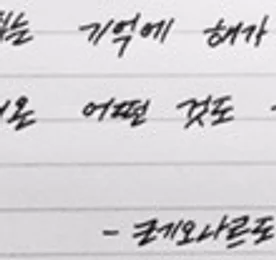 는 기억에 해가
온 어떤 것도
- 레오나르도